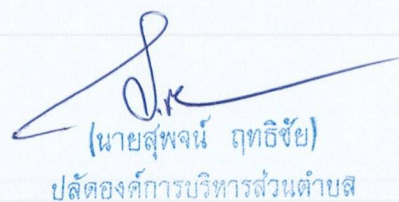 (นายสุพจน์ ฤทธิชัย)
ปลัดองค์การบริหารส่วนตำบล